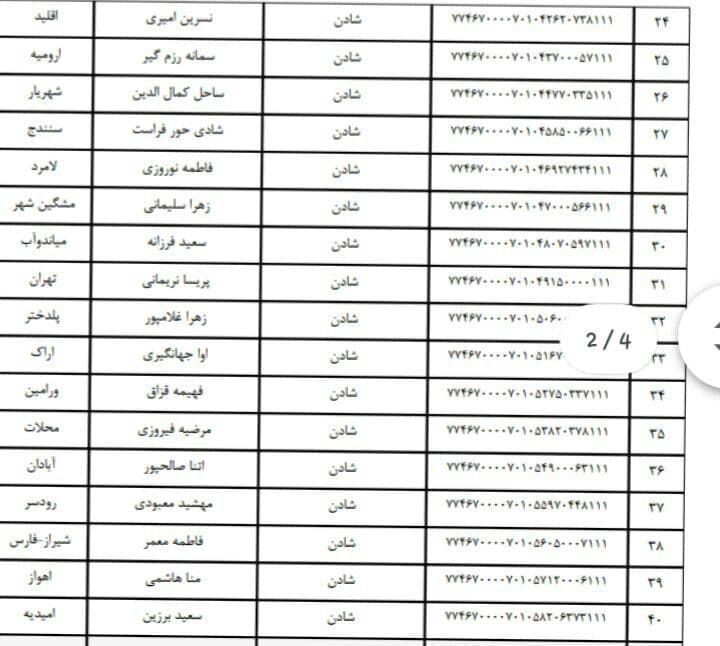 ۲۴ ۷۷۴۶۷۰۰۰۰۷۰۱۰۴۲۶۲۰۷۳۸۱۱۱ شادن نسرین امیری اقلید
۲۵ ۷۷۴۶۷۰۰۰۰۷۰۱۰۴۳۷۰۰۰۵۷۱۱۱ شادن سمانه رزم گیر ارومیه
۲۶ ۷۷۴۶۷۰۰۰۰۷۰۱۰۴۴۷۷۰۳۳۵۱۱۱ شادن ساحل کمال الدین شهریار
۲۷ ۷۷۴۶۷۰۰۰۰۷۰۱۰۴۵۸۵۰۰۶۶۱۱۱ شادن شادی حور فراست سنندج
۲۸ ۷۷۴۶۷۰۰۰۰۷۰۱۰۴۶۹۲۷۴۳۴۱۱۱ شادن فاطمه نوروزی لامرد
۲۹ ۷۷۴۶۷۰۰۰۰۷۰۱۰۴۷۰۰۰۵۶۶۱۱۱ شادن زهرا سلیمانی مشگین شهر
۳۰ ۷۷۴۶۷۰۰۰۰۷۰۱۰۴۸۰۷۰۵۹۷۱۱۱ شادن سعید فرزانه میاندوآب
۳۱ ۷۷۴۶۷۰۰۰۰۷۰۱۰۴۹۱۵۰۰۰۰۱۱۱ شادن پریسا نریمانی تهران
۳۲ شادن زهرا غلامپور پلدختر
2 / 4
شادن اوا جهانگیری اراک
۳۴ ۷۷۴۶۷۰۰۰۰۷۰۱۰۵۲۷۵۰۳۳۷۱۱۱ شادن فهیمه قزاق ورامین
۳۵ ۷۷۴۶۷۰۰۰۰۷۰۱۰۵۳۸۲۰۳۷۸۱۱۱ شادن مرضیه فیروزی محلات
۳۶ ۷۷۴۶۷۰۰۰۰۷۰۱۰۵۴۹۰۰۰۶۳۱۱۱ شادن اتنا صالحپور آبادان
۳۷ ۷۷۴۶۷۰۰۰۰۷۰۱۰۵۵۹۷۰۴۴۸۱۱۱ شادن مهشید معبودی رودسر
۳۸ ۷۷۴۶۷۰۰۰۰۷۰۱۰۵۶۰۵۰۰۰۷۱۱۱ شادن فاطمه معمر شیراز-فارس
۳۹ ۷۷۴۶۷۰۰۰۰۷۰۱۰۵۷۱۲۰۰۰۶۱۱۱ شادن منا هاشمی اهواز
۴۰ ۷۷۴۶۷۰۰۰۰۷۰۱۰۵۸۲۰۶۳۷۳۱۱۱ شادن سعید برزین امیدیه